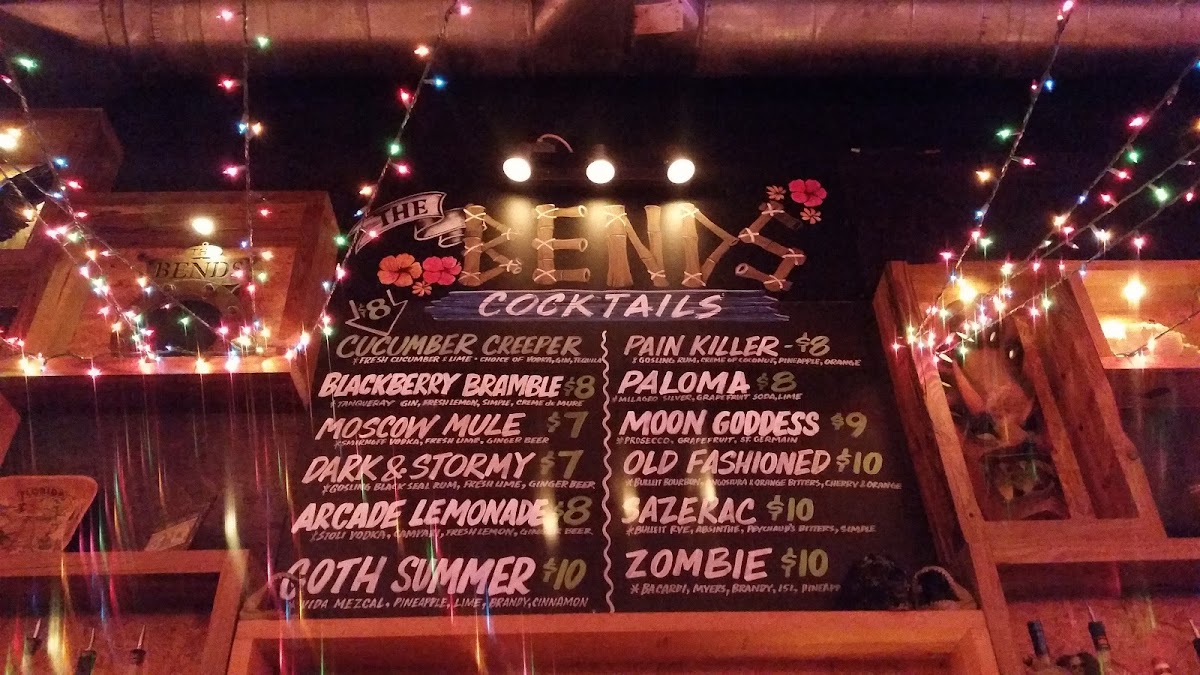 THE
BENDS
COCKTAILS
THE
BENDS
$8
CUCUMBER CREEPER
*FRESH CUCUMBER & LIME - CHOICE OF VODKA, GIN, TEQUILA
BLACKBERRY BRAMBLE $8
*TANQUERAY GIN, FRESH LEMON, SIMPLE, CREME de MURE
MOSCOW MULE $7
*SMIRNOFF VODKA, FRESH LIME, GINGER BEER
DARK & STORMY $7
*GOSLING BLACK SEAL RUM, FRESH LIME, GINGER BEER
ARCADE LEMONADE $8
*STOLI VODKA, CAMPARI, FRESH LEMON, GINGER BEER
GOTH SUMMER $10
VIDA MEZCAL, PINEAPPLE, LIME, BRANDY, CINNAMON
PAIN KILLER - $8
*GOSLING RUM, CREME OF COCONUT, PINEAPPLE, ORANGE
PALOMA $8
*MILAGRO SILVER, GRAPEFRUIT SODA, LIME
MOON GODDESS $9
*PROSECCO, GRAPEFRUIT, ST. GERMAIN
OLD FASHIONED $10
*BULLEIT BOURBON, ANGOSTURA & ORANGE BITTERS, CHERRY & ORANGE
SAZERAC $10
*BULLEIT RYE, ABSINTHE, PEYCHAUD'S BITTERS, SIMPLE
ZOMBIE $10
*BACARDI, MYERS, BRANDY, 151, PINEAPP
FLORIDA